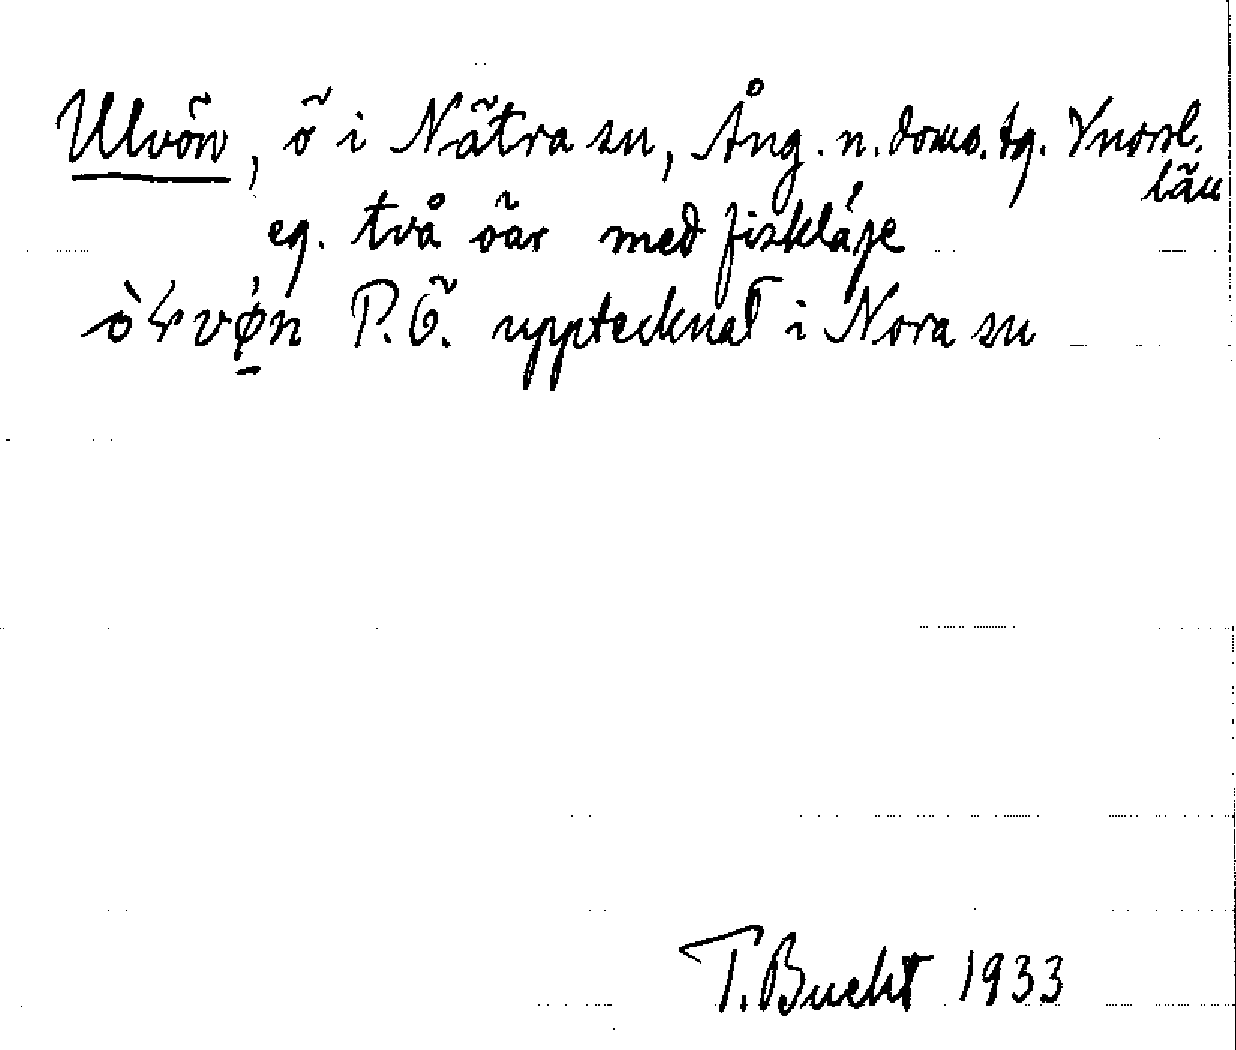 Ulvön, ö i Nätra sn, Ång. n. doms. tg. Vnorrl.
län
eg. två öar med fiskläge
P.Ö. upptecknat i Nora sn
T. Bucht 1933